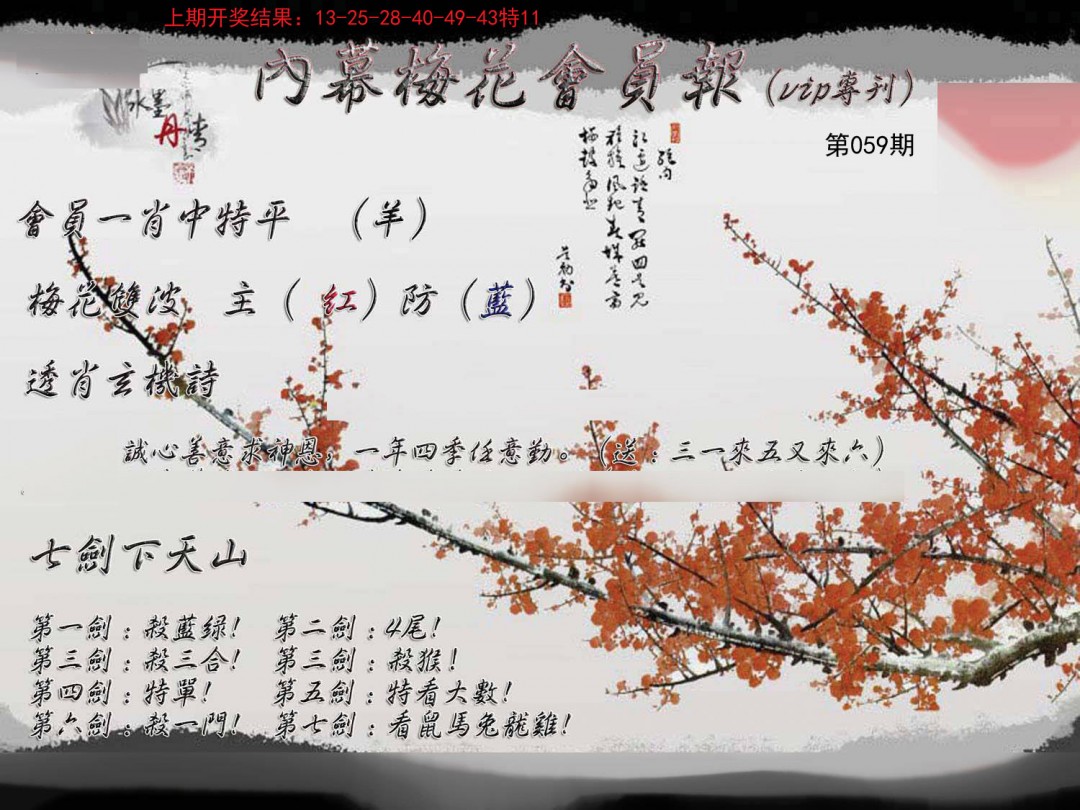 上期开奖结果：13-25-28-40-49-43特11
內幕梅花會員報（vip專刊）
水墨丹青
第059期
會員一肖中特平 （羊）
梅花雙波 主（紅）防（藍）
透肖玄機詩
誠心善意求神恩，一年四季任意勤。（送：三一來五又來六）
七劍下天山
第一劍：殺藍绿！ 第二劍：4尾！
第三劍：殺三合！ 第三劍：殺猴！
第四劍：特單！ 第五劍：特看大數！
第六劍：殺一門！ 第七劍：看鼠馬兔龍雞！